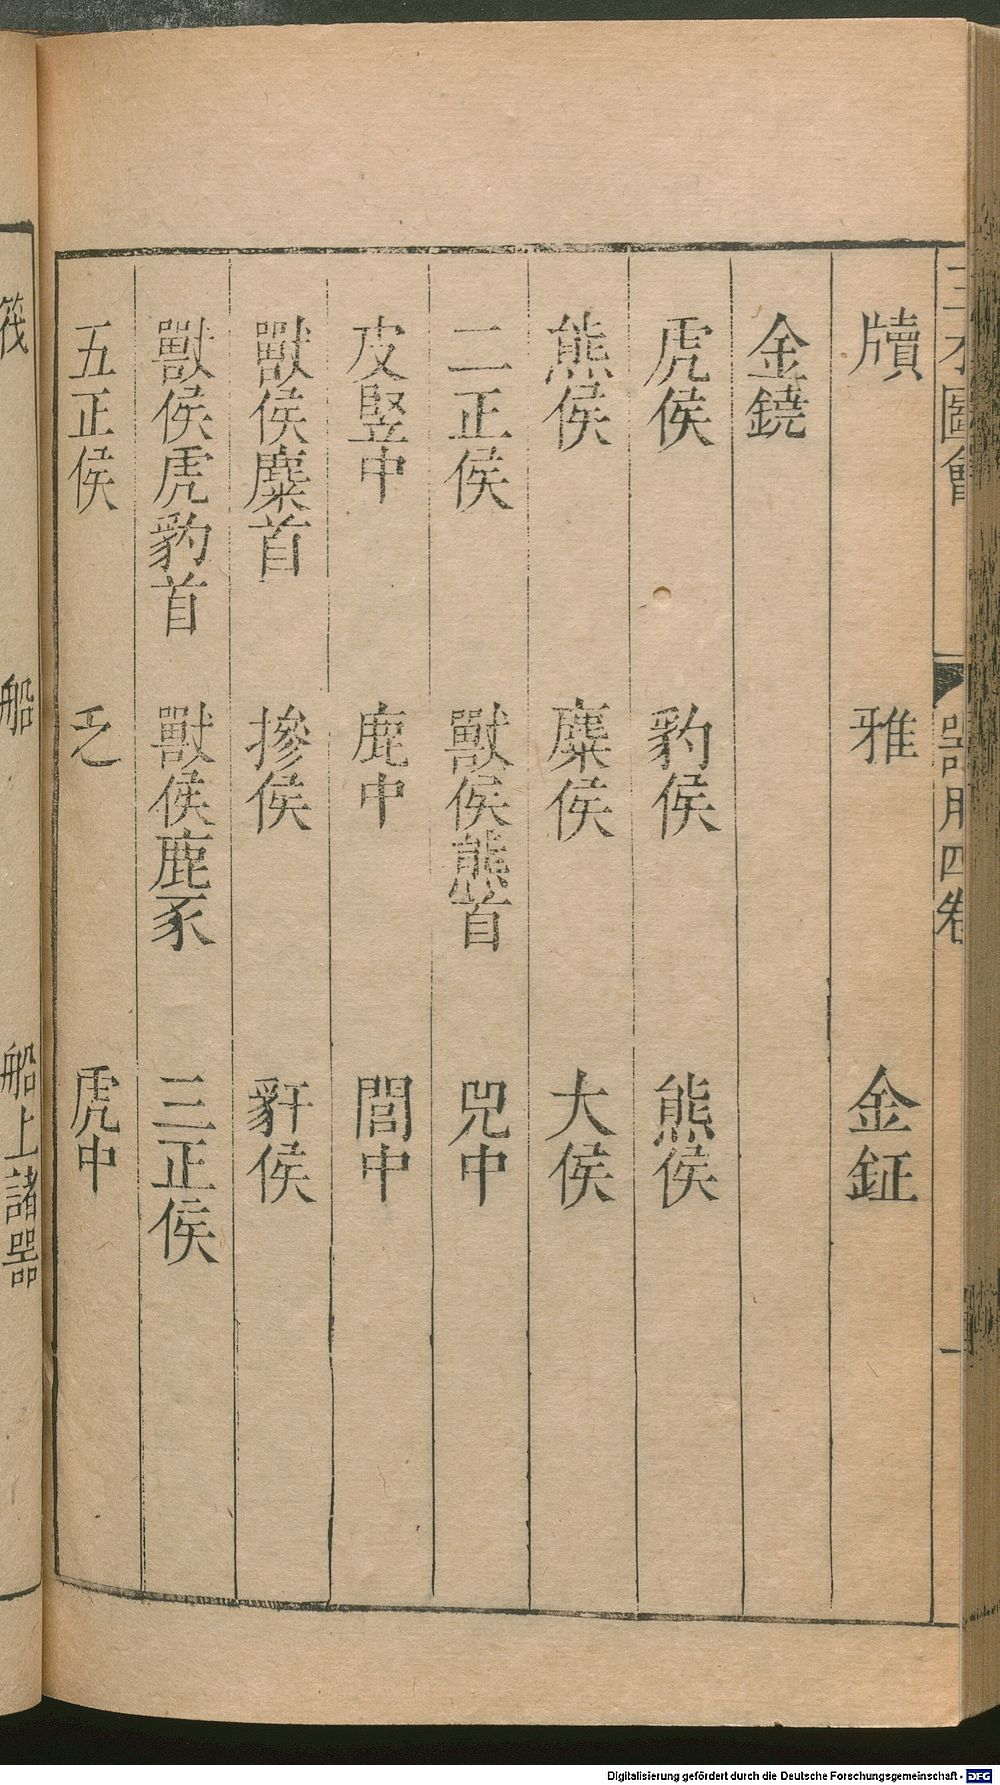 三才圖會 器用四卷 一
牘 雅 金鉦
金鐃
虎侯 豹侯 熊侯
熊侯 麋侯 大侯
二正侯 獸侯熊首 兕中
皮竪中 鹿中 閭中
獸侯麋首 摻侯 豻侯
獸侯虎豹首 獸侯鹿豕 三正侯
五正侯 乏 虎中
筏 船 船上諸器
Digitalisierung gefördert durch die Deutsche Forschungsgemeinschaft - DFG